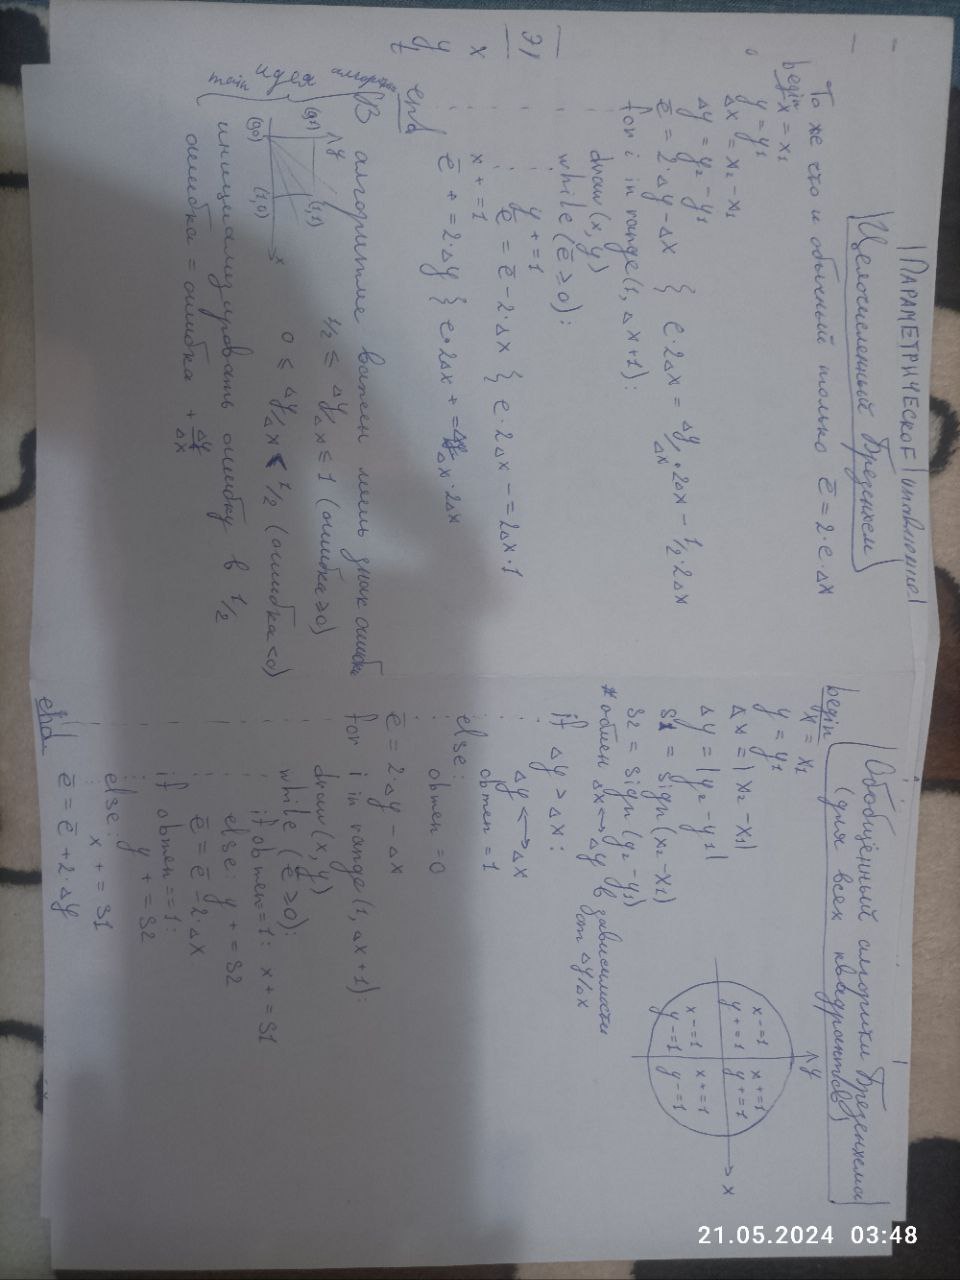 ПАРАМЕТРИЧЕСКОЕ
Целочисленный Брезенхем
То же что и обычный только ē = 2·e·Δx
begin
x = x₁
y = y₁
Δx = x₂ - x₁
Δy = y₂ - y₁
ē = 2·Δy - Δx { e·2Δx = Δy/Δx·2Δx - 1/2·2Δx
for i in range(1, Δx+1):
draw(x, y)
while (ē ≥ 0):
y += 1
ē = ē - 2·Δx { e·2Δx -= 2Δx·1
x += 1
ē += 2·Δy
end
В алгоритме важен лишь знак ошибки
1/2 ≤ Δy/Δx ≤ 1 (ошибка ≥ 0)
0 ≤ Δy/Δx < 1/2 (ошибка < 0)
инициализировать ошибку в 1/2
ошибка = ошибка + Δy/Δx
идея
main
y
x
(0,1)
(1,1)
(0,0)
(1,0)
ЭЛ
x
y
Обобщённый алгоритм Брезенхема
(для всех квадрантов)
begin
x = x₁
y = y₁
Δx = |x₂ - x₁|
Δy = |y₂ - y₁|
s1 = sign(x₂ - x₁)
s2 = sign(y₂ - y₁)
# обмен Δx ↔ Δy в зависимости
от Δy/Δx
if Δy > Δx:
Δy ↔ Δx
obmen = 1
else:
obmen = 0
ē = 2·Δy - Δx
for i in range(1, Δx+1):
draw(x, y)
while (ē ≥ 0):
if obmen == 1: x += s1
else: y += s2
ē = ē - 2·Δx
if obmen == 1:
y += s2
else:
x += s1
ē = ē + 2·Δy
end
y
x
x -= 1
y += 1
x += 1
y += 1
x -= 1
y -= 1
x += 1
y -= 1
21.05.2024 03:48